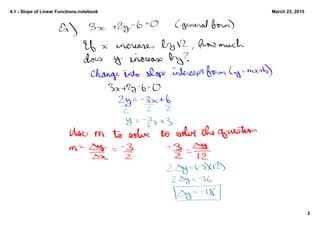 4.1 - Slope of Linear Functions.notebook
March 23, 2015
Ex) 3x +2y-6=0 (general form)
If x increases by 12, how much
does y increase by?
Change into slope intercept form (y=mx+b)
3x+2y-6=0
2y=-3x+6
2 2 2
y=-3/2x+3
Use m to solve to solve the question
m=Δy/Δx=-3/2 -3/2=Δy/12
2Δy=(-3)(12)
2Δy=-36
Δy=-18
3